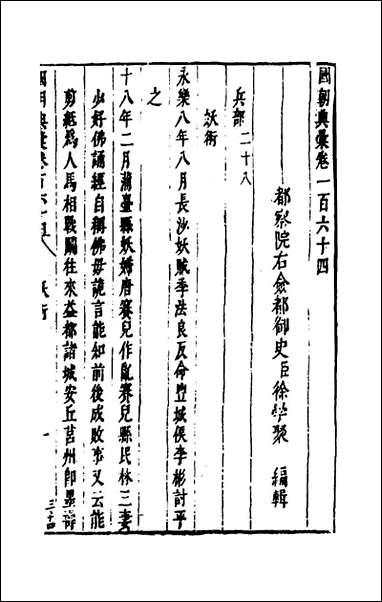 國朝典彙卷一百六十四
都察院右僉都御史臣徐學聚 編輯
兵部二十八
妖術
永樂八年八月長沙妖賊李法良反命豐城侯李彬討平
之
十八年二月蒲臺縣妖婦唐賽兒作亂賽兒縣民林三妻
少好佛誦經自稱佛母詭言能知前後成敗事又云能
剪紙為人馬相戰鬭往來益都諸城安丘莒州即墨壽
國朝典彙卷百六十四 妖術 一